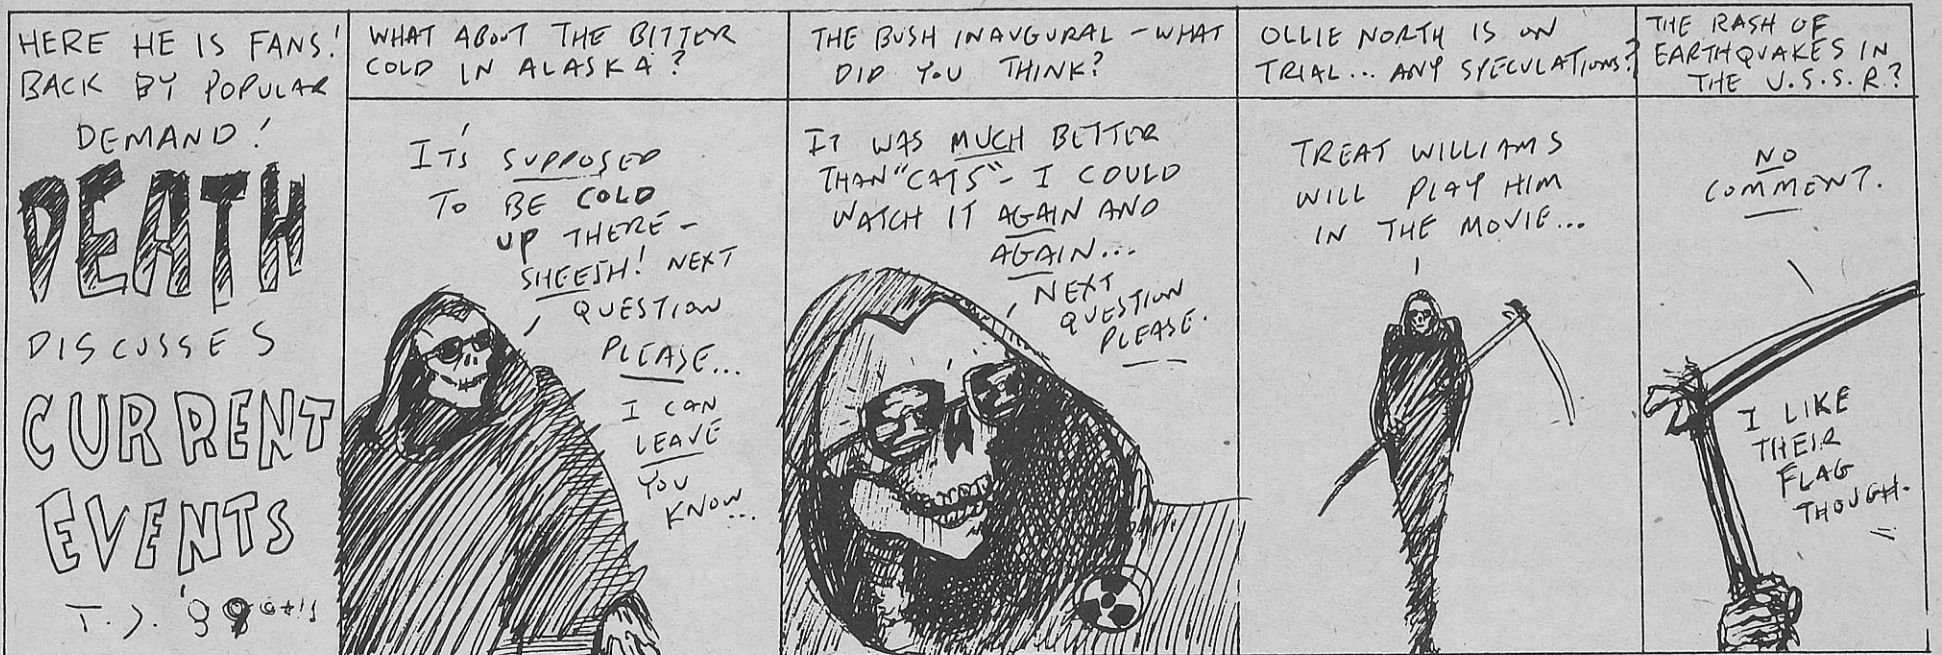 HERE HE IS FANS!
BACK BY POPULAR
DEMAND!
DEATH
DISCUSSES
CURRENT
EVENTS
T.J. '89
WHAT ABOUT THE BITTER
COLD IN ALASKA?
IT'S SUPPOSED
TO BE COLD
UP THERE -
SHEESH! NEXT
QUESTION
PLEASE...
I CAN
LEAVE
YOU
KNOW...
THE BUSH INAUGURAL - WHAT
DID YOU THINK?
IT WAS MUCH BETTER
THAN "CATS" - I COULD
WATCH IT AGAIN AND
AGAIN...
NEXT
QUESTION
PLEASE.
OLLIE NORTH IS ON
TRIAL... ANY SPECULATIONS?
TREAT WILLIAMS
WILL PLAY HIM
IN THE MOVIE...
THE RASH OF
EARTHQUAKES IN
THE U.S.S.R.?
NO
COMMENT.
I LIKE
THEIR
FLAG
THOUGH.